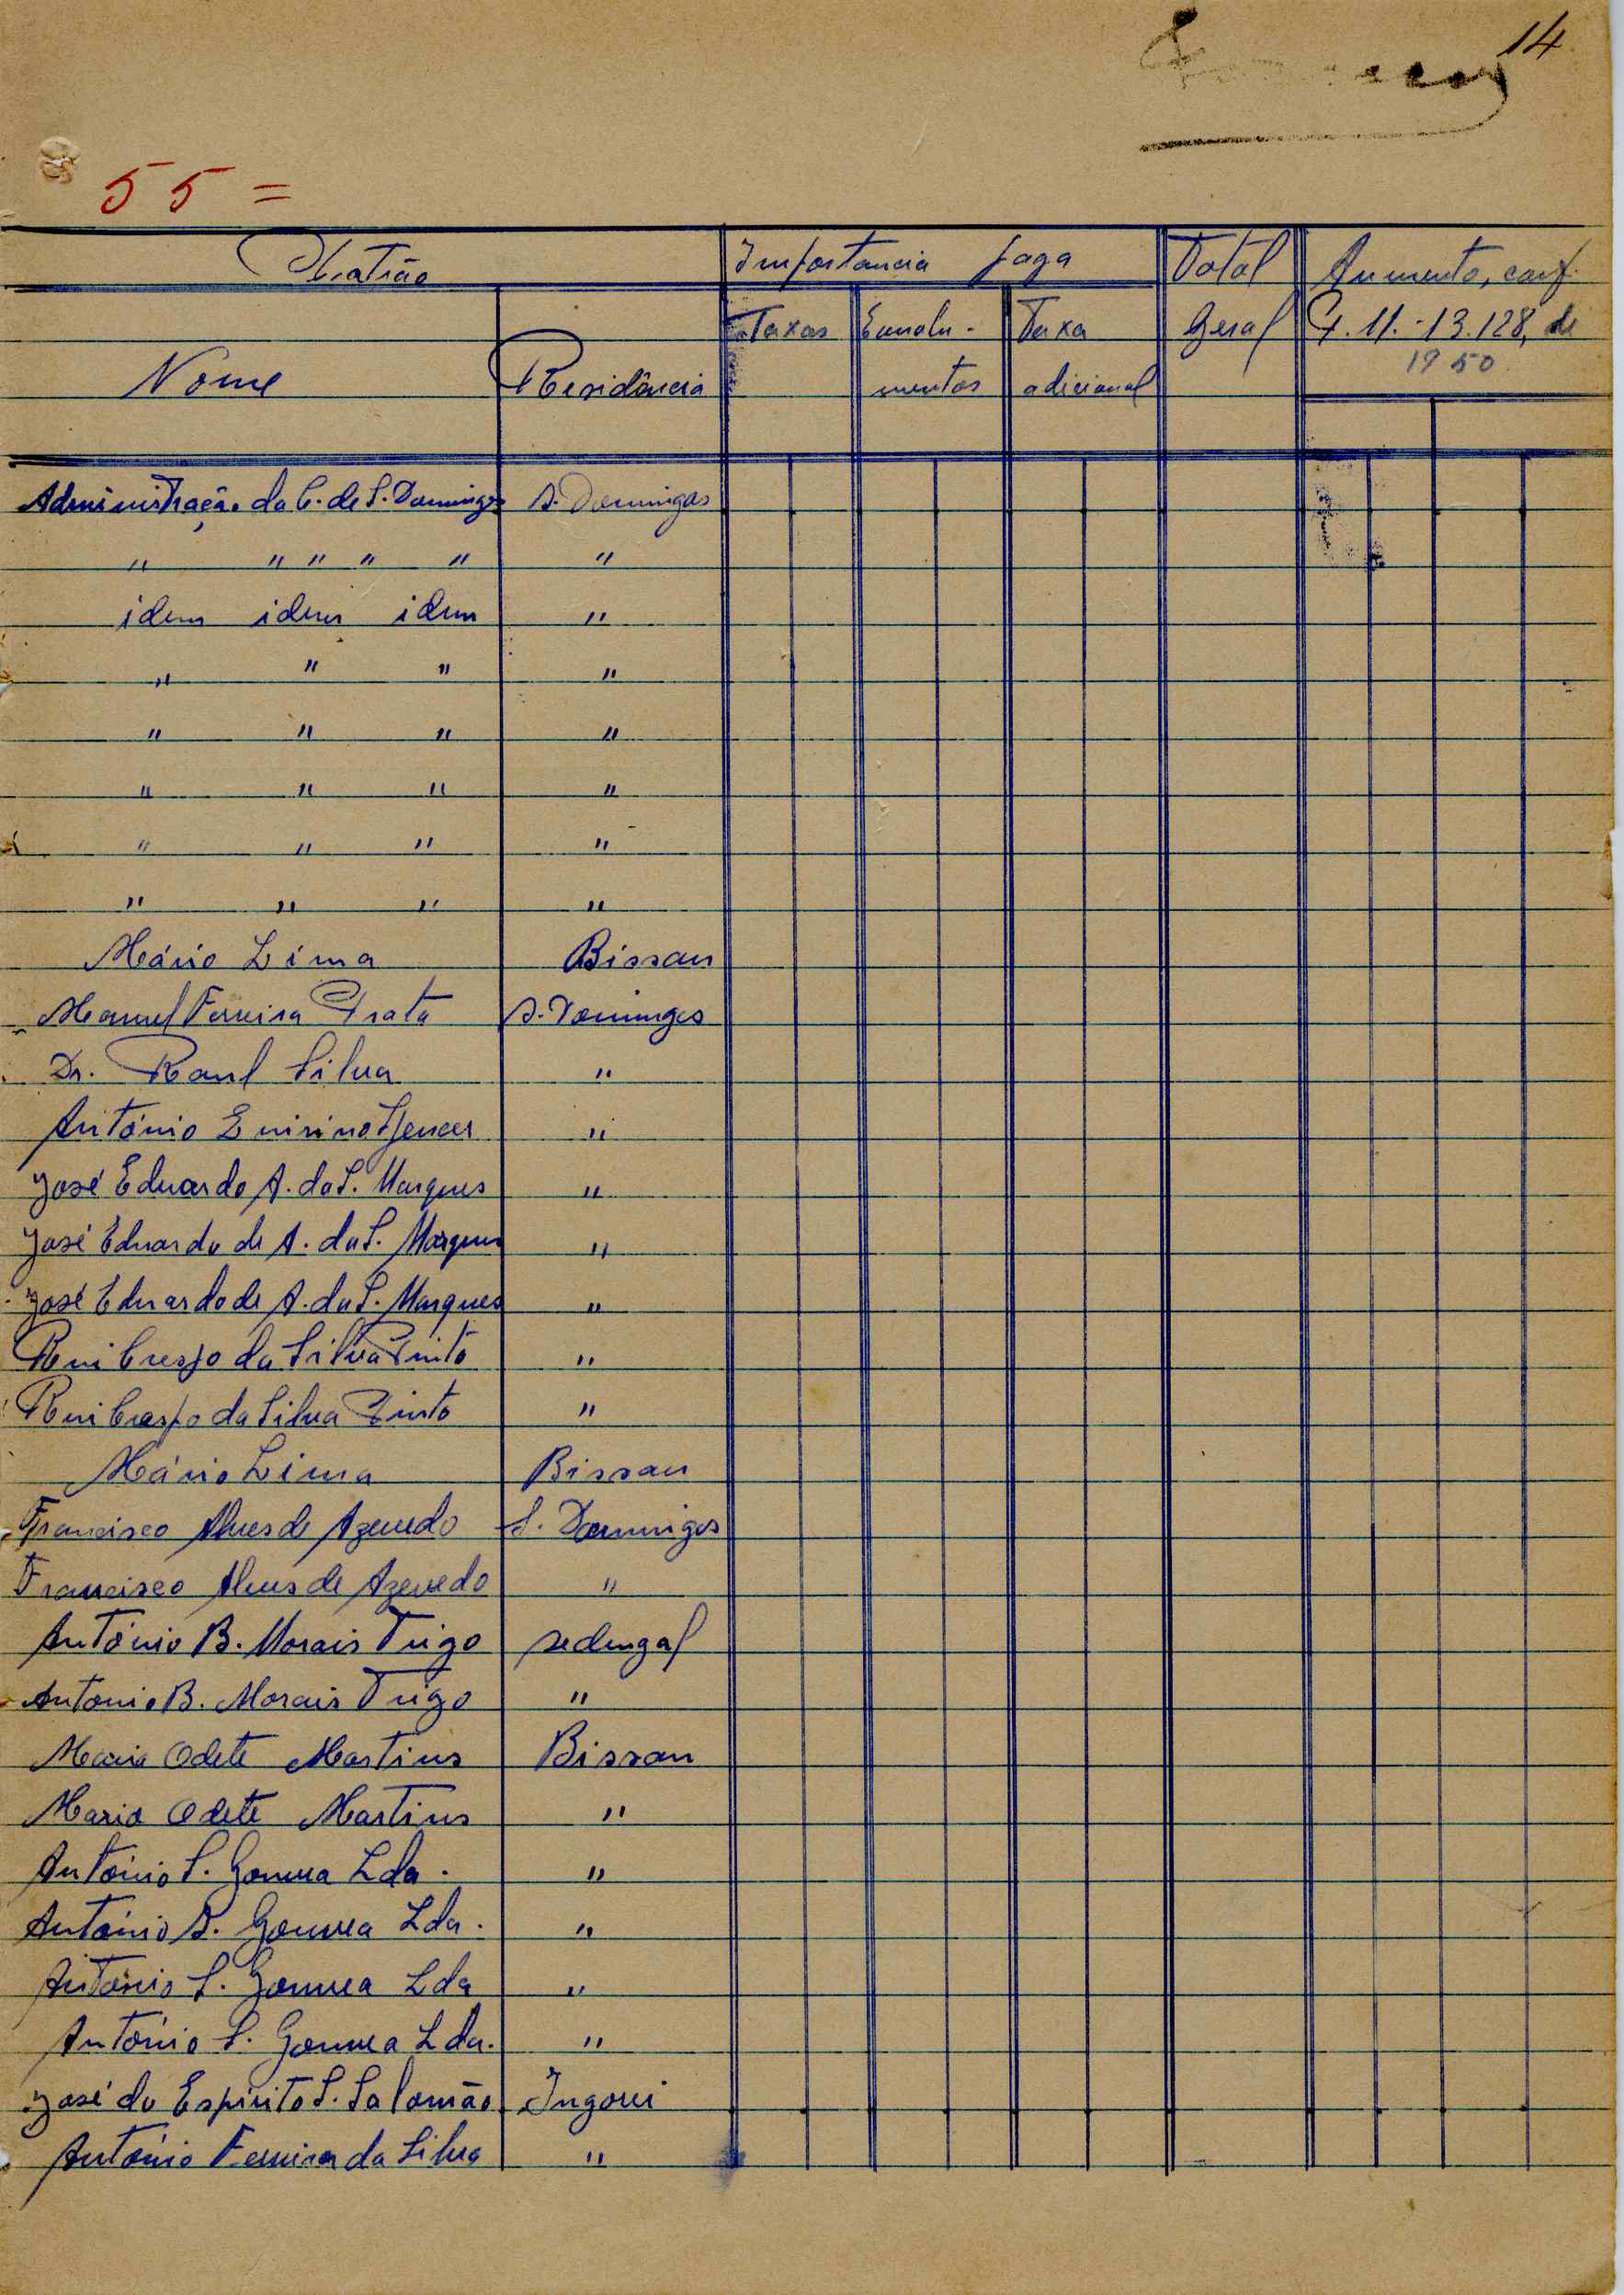 14
55 =
Patrão
Importancia paga
Total
Geral
Aumento, conf.
P. 11.-13.128, de
1950
Nome
Residência
Taxas
Emolu-
mentos
Taxa
adicional
Administração da C. de S. Domingos S. Domingos
" " " " " "
idem idem idem "
" " " "
" " " "
" " " "
" " " "
" " " "
Mário Lima Bissau
Manuel Ferreira Prata S. Domingos
Dr. Raul Silva "
António "
José Eduardo A. da S. Marques "
José Eduardo de A. da S. Marques "
José Eduardo de A. da S. Marques "
Rui Crespo da Silva Pinto "
Rui Crespo da Silva Pinto "
Mário Lima Bissau
Francisco Alves de Azevedo S. Domingos
Francisco Alves de Azevedo "
António B. Morais Trigo sedengal
Antonio B. Morais Trigo "
Maria Odete Martins Bissau
Maria Odete Martins "
António S. Gouveia Lda. "
António S. Gouveia Lda. "
António S. Gouveia Lda "
António S. Gouveia Lda. "
José do Espirito S. Salomão Ingoré
António Ferreira da Silva "